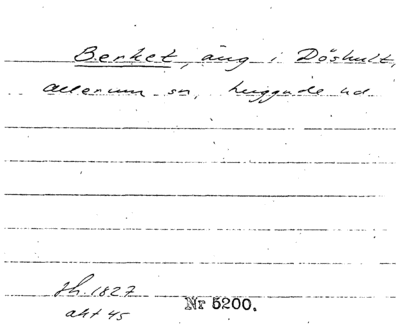 Berket, äng i Döshult,
Allerum sn, Luggude hd.
sh. 1827
akt 45
Nr 5200.